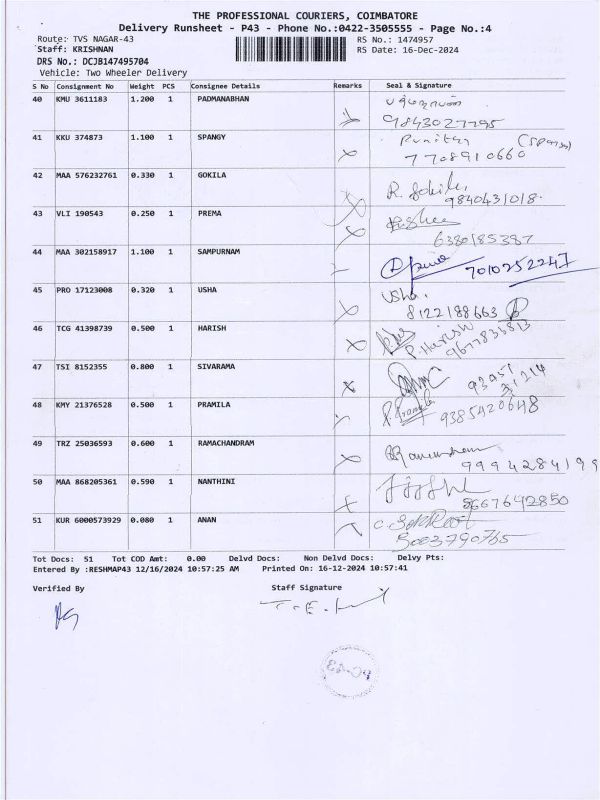 THE PROFESSIONAL COURIERS, COIMBATORE
Delivery Runsheet - P43 - Phone No.:0422-3505555 - Page No.:4
Route: TVS NAGAR-43 RS No.: 1474957
Staff: KRISHNAN RS Date: 16-Dec-2024
DRS No.: DCJB147495704
Vehicle: Two Wheeler Delivery
S No Consignment No Weight PCS Consignee Details Remarks Seal & Signature
40 KMU 3611183 1.200 1 PADMANABHAN
9843027795
41 KKU 374873 1.100 1 SPANGY
7708910660
42 MAA 576232761 0.330 1 GOKILA R. Gokila
9840431018.
43 VLI 190543 0.250 1 PREMA
6380185387
44 MAA 302158917 1.100 1 SAMPURNAM
7010252247
45 PRO 17123008 0.320 1 USHA Usha.
8122188663
46 TCG 41398739 0.500 1 HARISH P. Harish
9677836813
47 TSI 8152355 0.800 1 SIVARAMA 93451
31214
48 KMY 21376528 0.500 1 PRAMILA P. Pramila
9385420648
49 TRZ 25036593 0.600 1 RAMACHANDRAM
9994284199
50 MAA 868205361 0.590 1 NANTHINI
8667642850
51 KUR 6000573929 0.080 1 ANAN
5003790765
Tot Docs: 51 Tot COD Amt: 0.00 Delvd Docs: Non Delvd Docs: Delvy Pts:
Entered By :RESHMAP43 12/16/2024 10:57:25 AM Printed On: 16-12-2024 10:57:41
Verified By Staff Signature